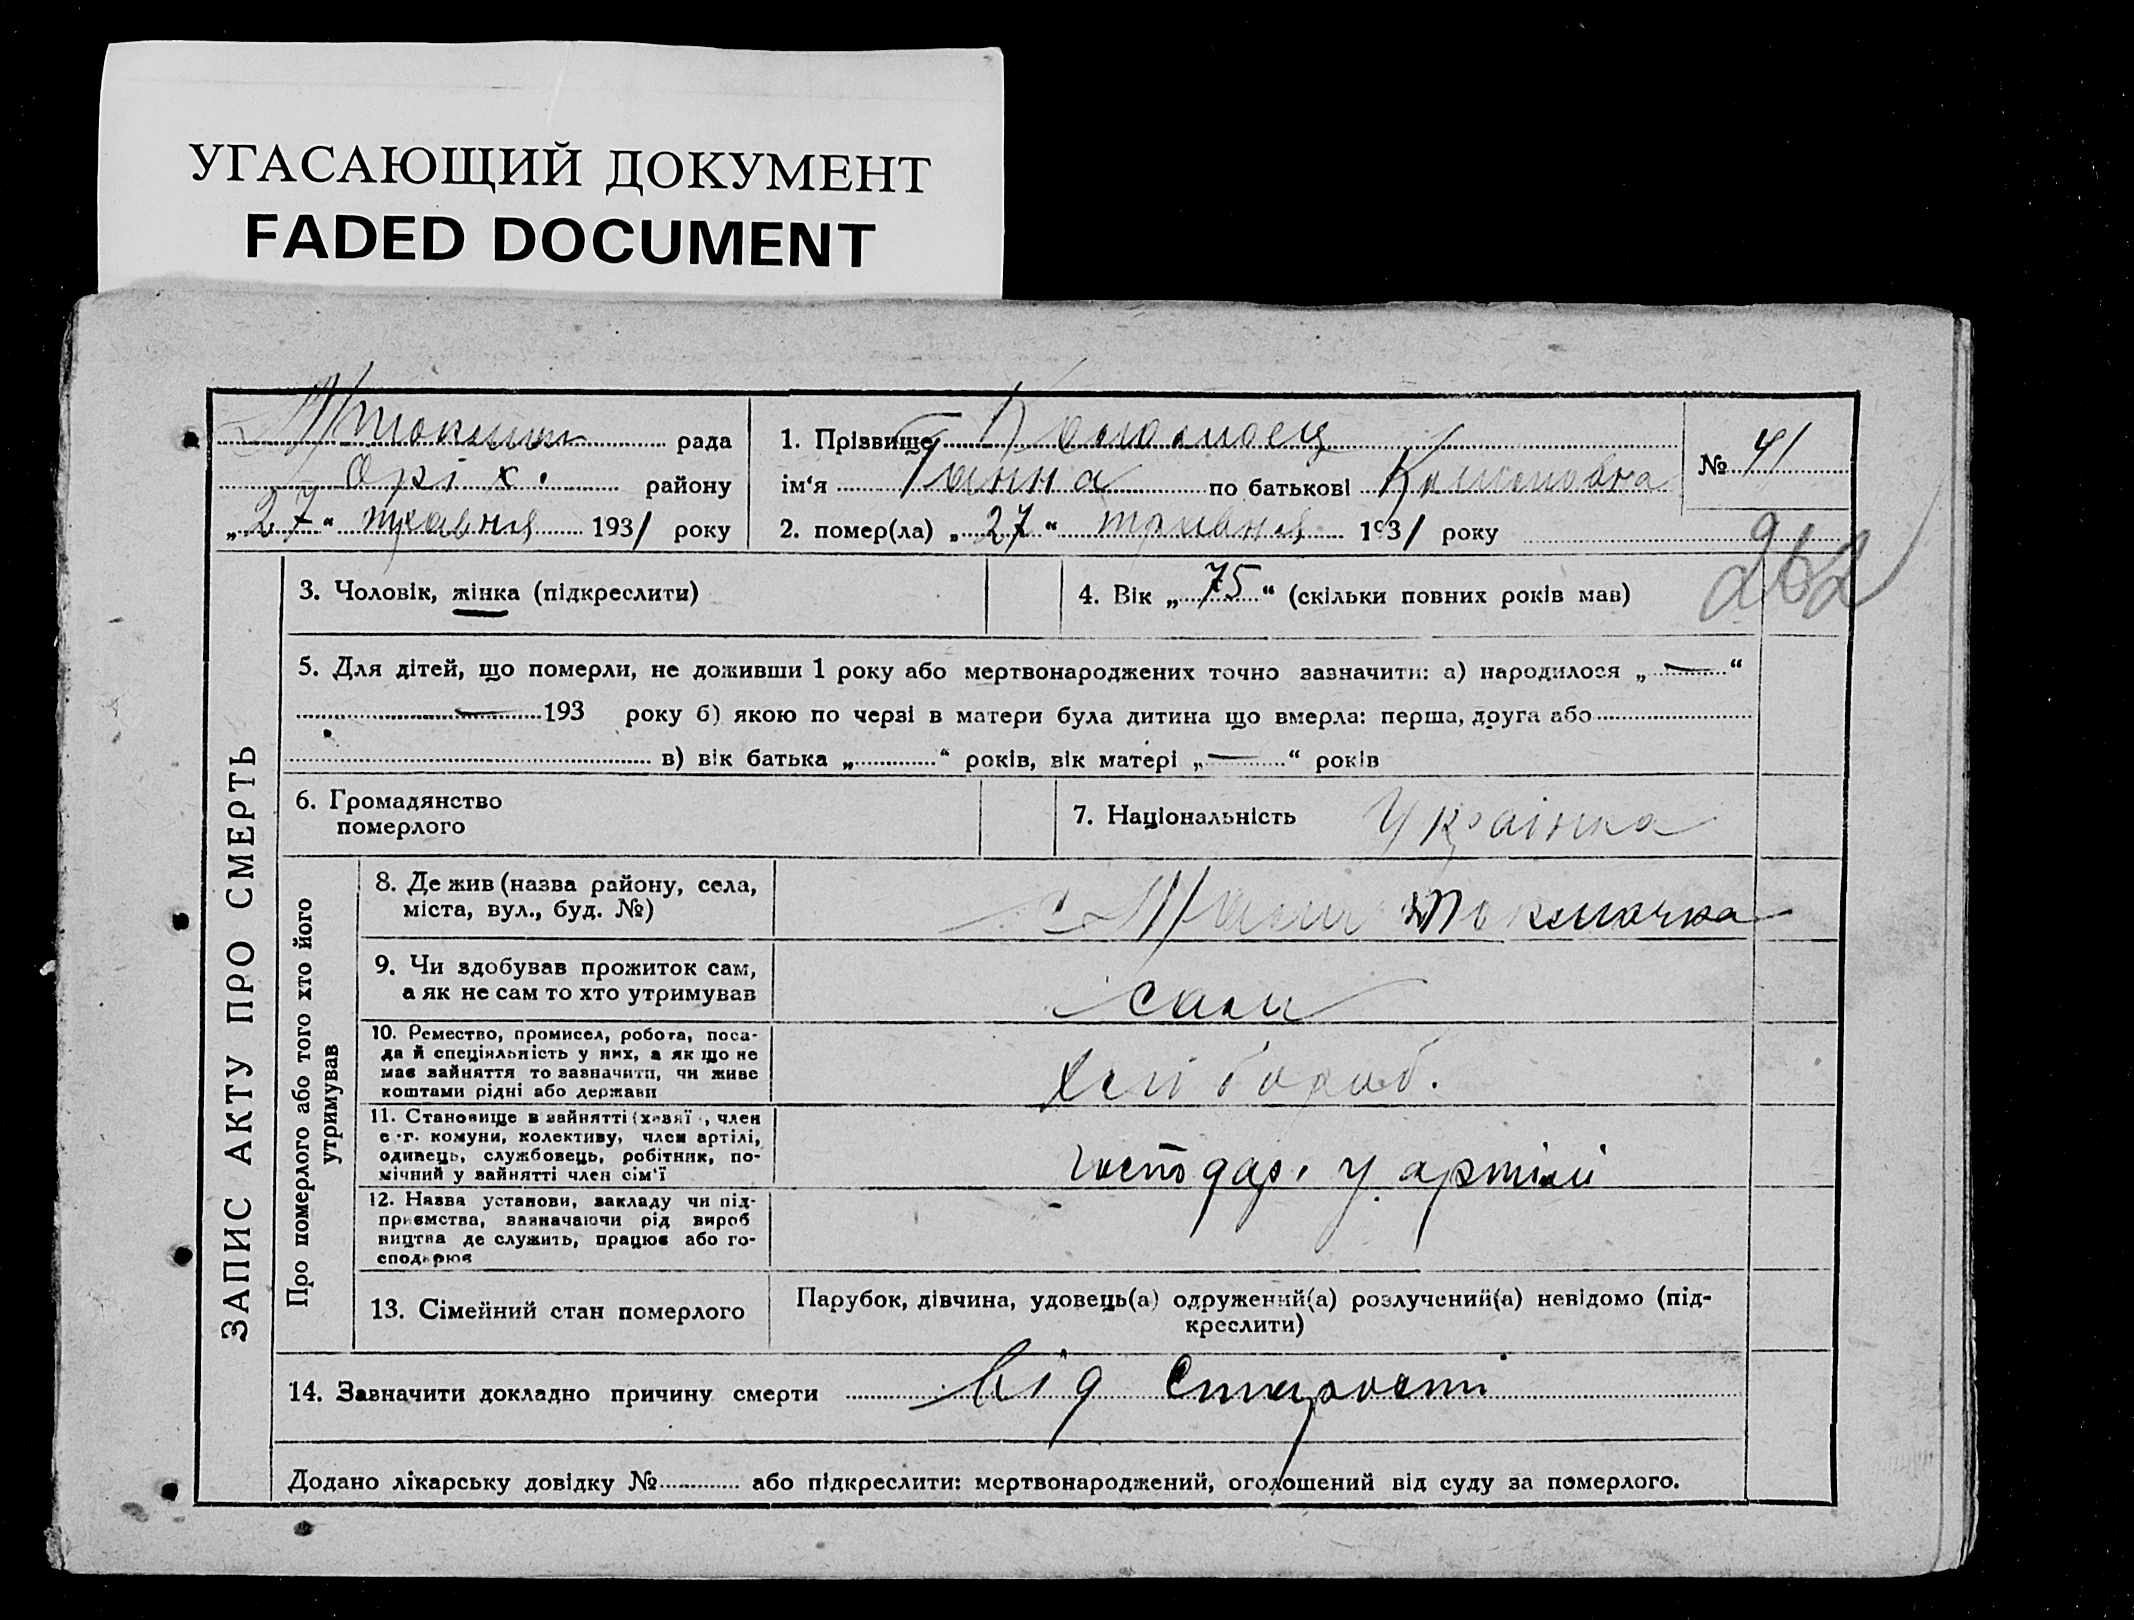 УГАСАЮЩИЙ ДОКУМЕНТ
FADED DOCUMENT
рада
Оріх. району
„27“ травня 1931 року
1. Прізвище Коломоец
ім‘я Ганна по батькові
2. помер(ла) „27“ травня 1931 року
№ 41
262
ЗАПИС АКТУ ПРО СМЕРТЬ
3. Чоловік, жінка (підкреслити)
4. Вік „75“ (скільки повних років мав)
5. Для дітей, що померли, не доживши 1 року або мертвонароджених точно зазначити: а) народилося „—“
— 193 року б) якою по черзі в матери була дитина що вмерла: перша, друга або
в) вік батька „ “ років, вік матері „—“ років
6. Громадянство
померлого
7. Національність Українка
Про померлого або того хто його
утримував
8. Де жив (назва району, села,
міста, вул., буд. №)
с Мали Токмачка
9. Чи здобував прожиток сам,
а як не сам то хто утримував
сам
10. Ремество, промисел, робота, поса-
да й спеціяльність у них, а як що не
має зайняття то зазначити, чи живе
коштами рідні або держави
хліборob.
11. Становище в зайнятті (хазяї , член
с.-г. комуни, колективу, член артілі,
одинець, службовець, робітник, по-
мічний у зайнятті член сім‘ї
господар. у артілі
12. Назва установи, закладу чи під-
приємства, зазначаючи рід вироб
ництва де служить, працює або го-
сподарює
13. Сімейний стан померлого
Парубок, дівчина, удовець(а) одружений(а) розлучений(а) невідомо (під-
креслити)
14. Зазначити докладно причину смерти від старости
Додано лікарську довідку № або підкреслити: мертвонароджений, оголошений від суду за померлого.